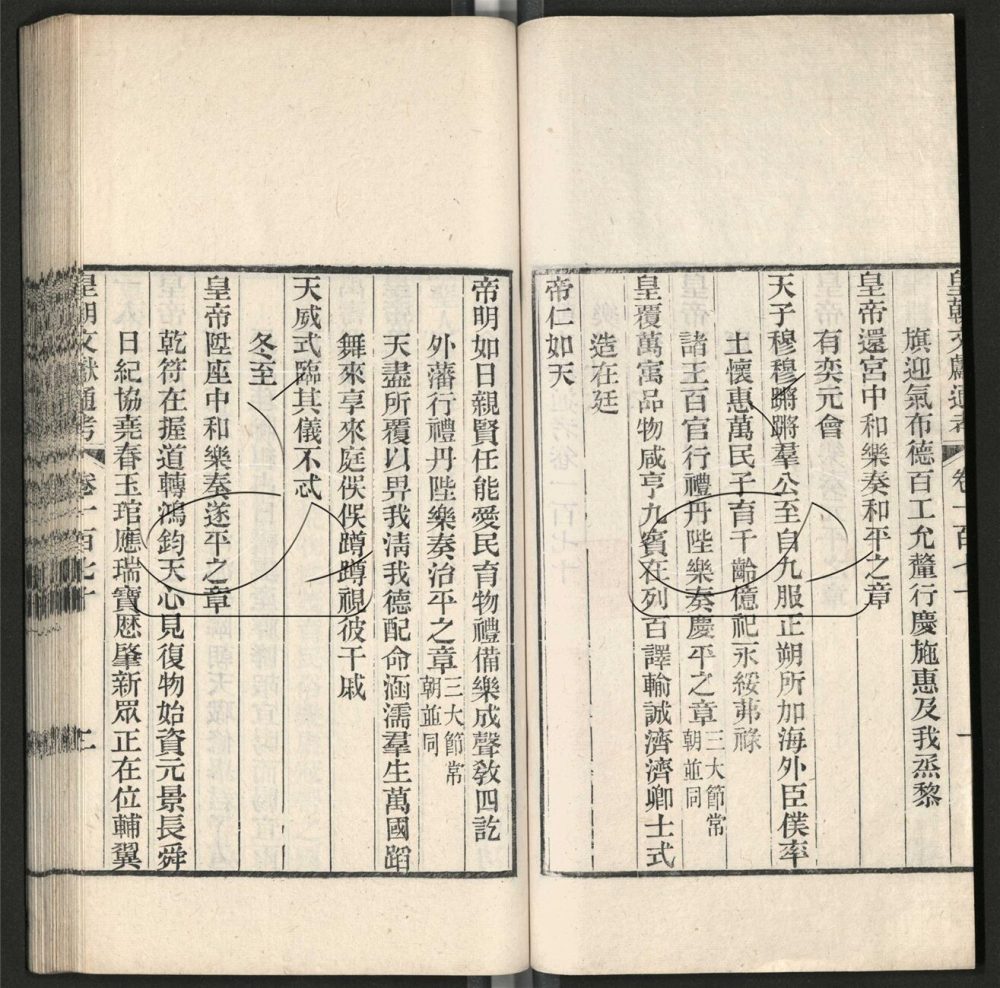 皇朝文獻通考 卷一百七十 一
旗迎氣布德百工允釐行慶施惠及我烝黎
皇帝還宮中和樂奏和平之章
有奕元會
天子穆穆蹌蹌羣公至自九服正朔所加海外臣僕率
土懷惠萬民子育千齡億祀永綏茀祿
諸王百官行禮丹陛樂奏慶平之章三大節常朝並同
皇覆萬寓品物咸亨九賓在列百譯輸誠濟濟卿士式
造在廷
帝仁如天
帝明如日親賢任能愛民育物禮備樂成聲敎四訖
外藩行禮丹陛樂奏治平之章三大節常朝並同
天盡所覆以畀我淸我德配命涵濡羣生萬國蹈
舞來享來庭俣俣蹲蹲視彼干戚
天威式臨其儀不忒
冬至
皇帝陞座中和樂奏遂平之章
乾符在握道轉鴻鈞天心見復物始資元景長舜
日紀協堯春玉琯應瑞寶歷肇新眾正在位輔翼
皇朝文獻通考 卷一百七十 二